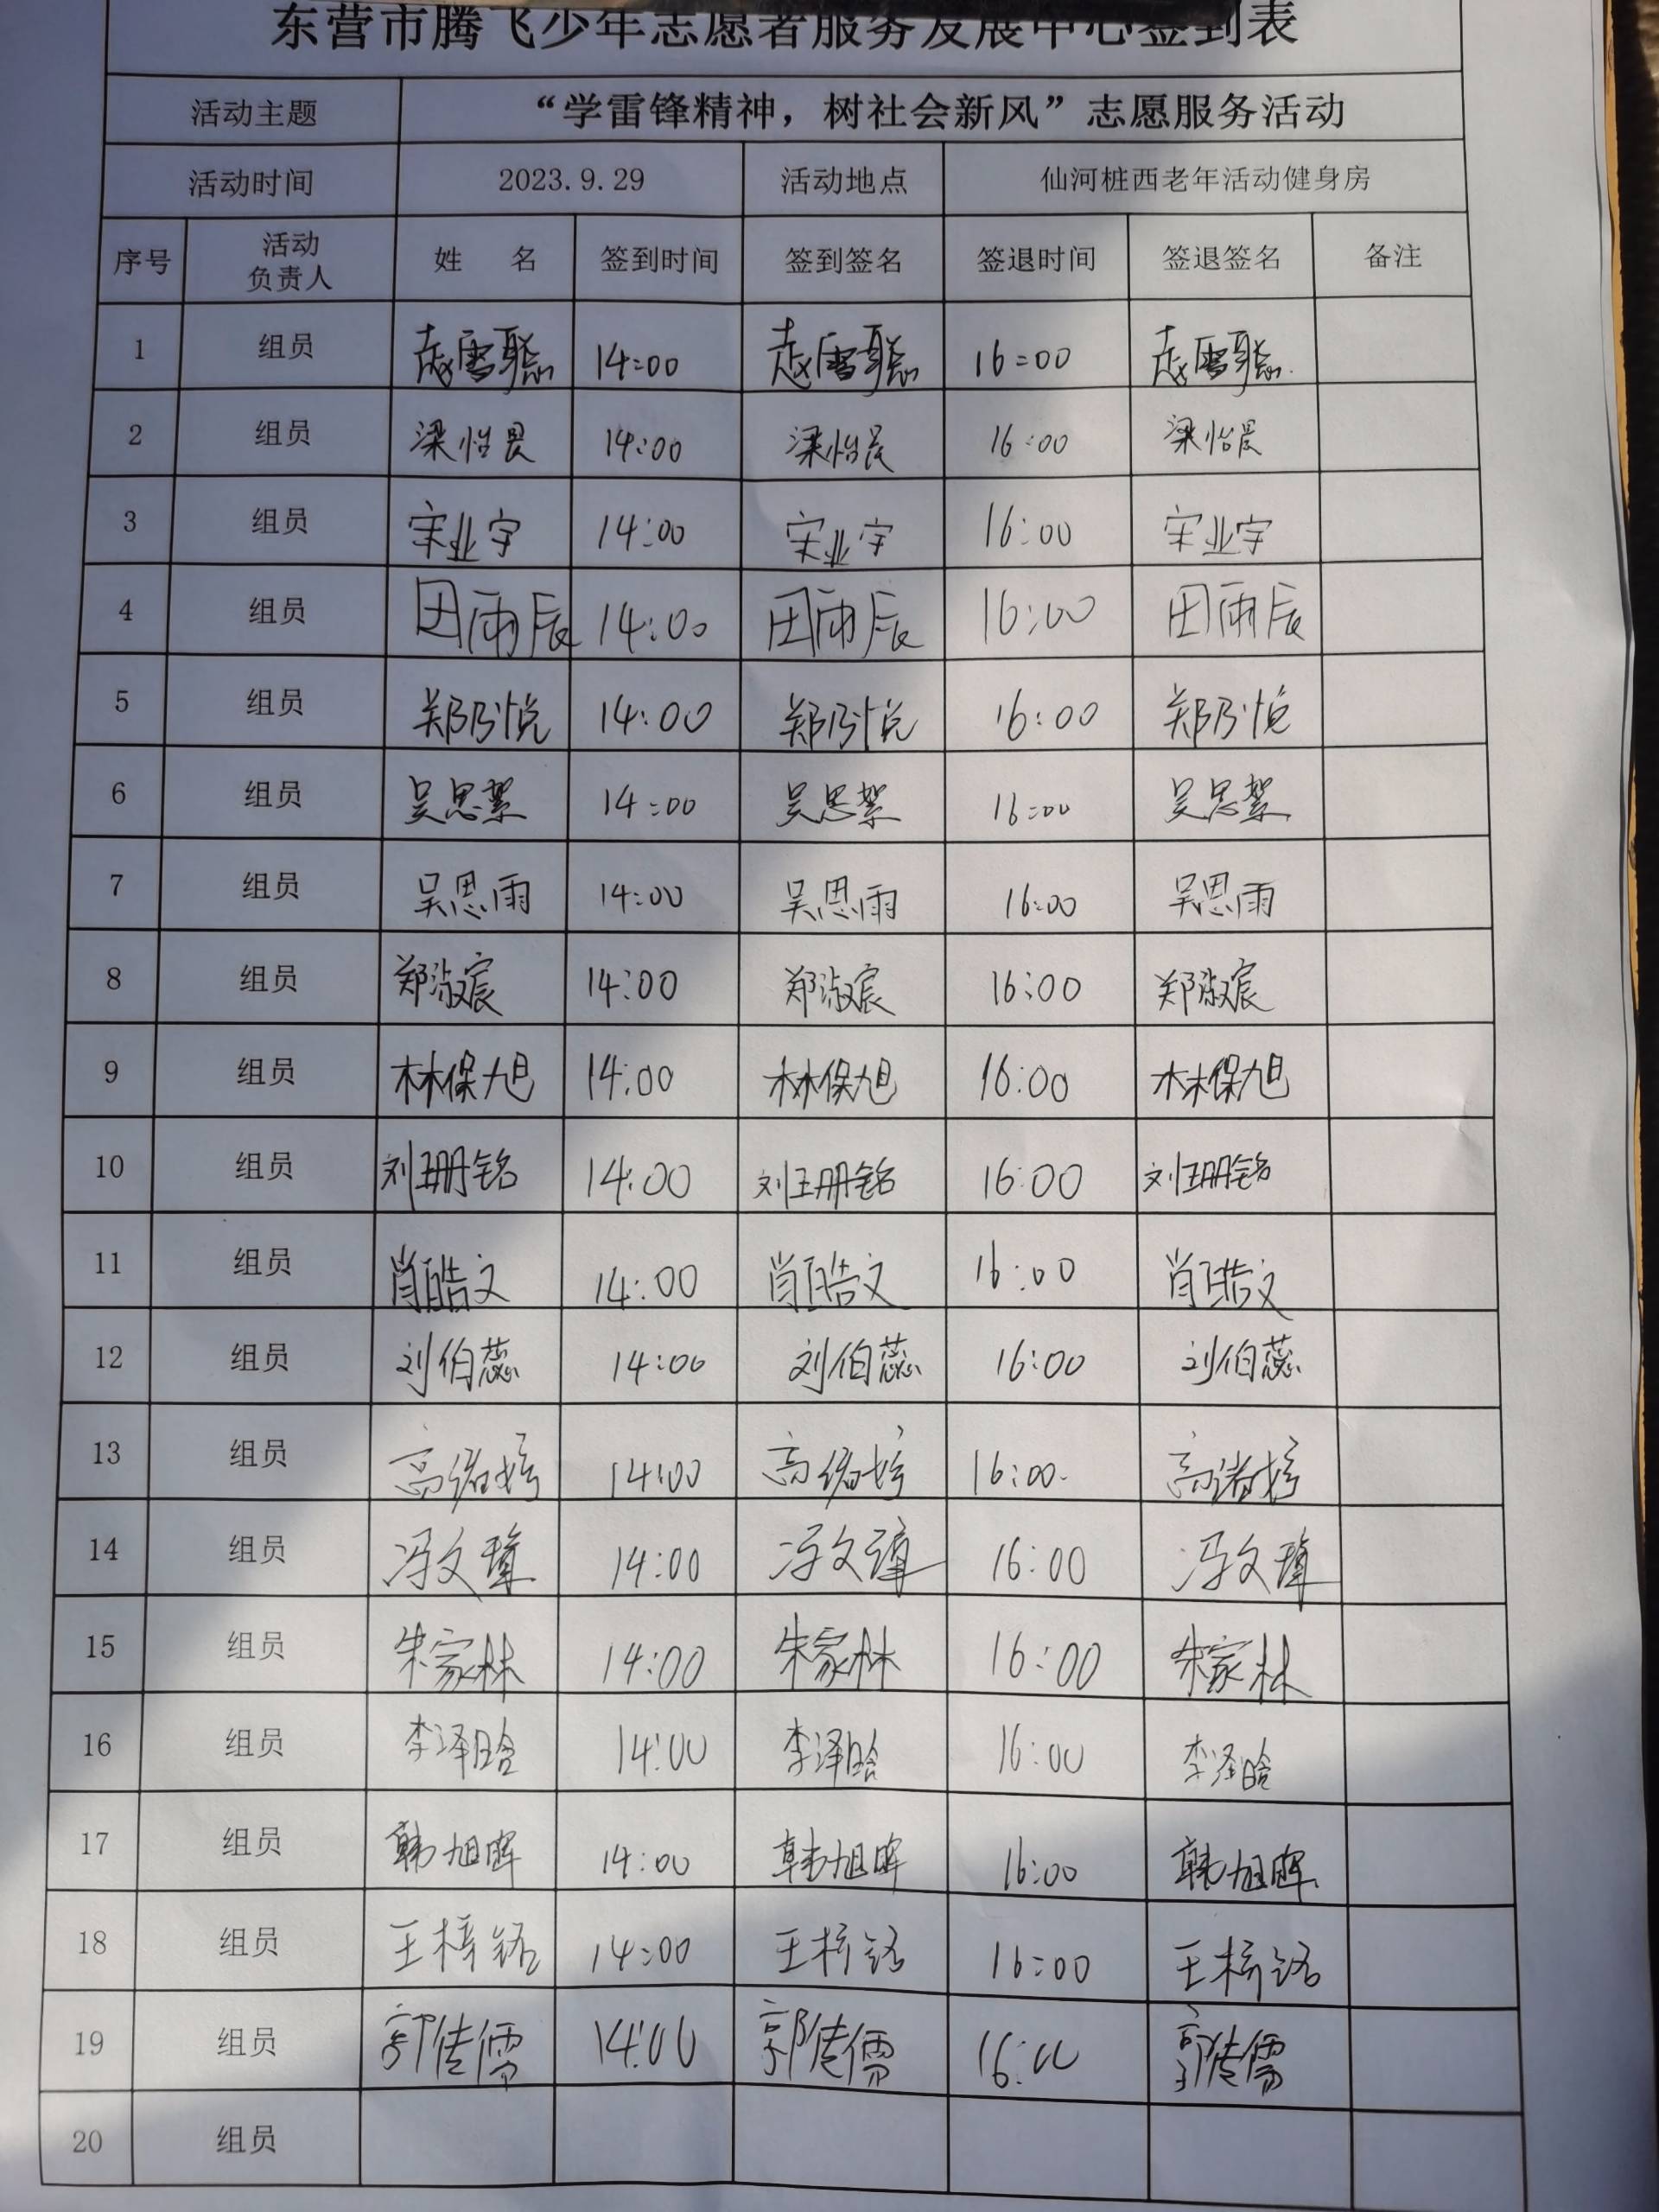 东营市腾飞少年志愿者服务发展中心签到表
活动主题 “学雷锋精神，树社会新风”志愿服务活动
活动时间 2023.9.29 活动地点 仙河桩西老年活动健身房
序号 活动负责人 姓 名 签到时间 签到签名 签退时间 签退签名 备注
1 组员 14:00 16:00
2 组员 梁怡晨 14:00 梁怡晨 16:00 梁怡晨
3 组员 宋业宇 14:00 宋业宇 16:00 宋业宇
4 组员 田雨辰 14:00 田雨辰 16:00 田雨辰
5 组员 14:00 16:00
6 组员 吴思絮 14:00 吴思絮 16:00 吴思絮
7 组员 吴思雨 14:00 吴思雨 16:00 吴思雨
8 组员 郑淑宸 14:00 郑淑宸 16:00 郑淑宸
9 组员 林保旭 14:00 林保旭 16:00 林保旭
10 组员 刘珊铭 14:00 刘珊铭 16:00 刘珊铭
11 组员 肖皓文 14:00 肖皓文 16:00 肖皓文
12 组员 刘伯蕊 14:00 刘伯蕊 16:00 刘伯蕊
13 组员 14:00 16:00
14 组员 冯文璋 14:00 冯文璋 16:00 冯文璋
15 组员 朱家林 14:00 朱家林 16:00 朱家林
16 组员 李泽晗 14:00 李泽晗 16:00 李泽晗
17 组员 韩旭晖 14:00 韩旭晖 16:00 韩旭晖
18 组员 王梓铭 14:00 王梓铭 16:00 王梓铭
19 组员 郭传儒 14:00 郭传儒 16:00 郭传儒
20 组员